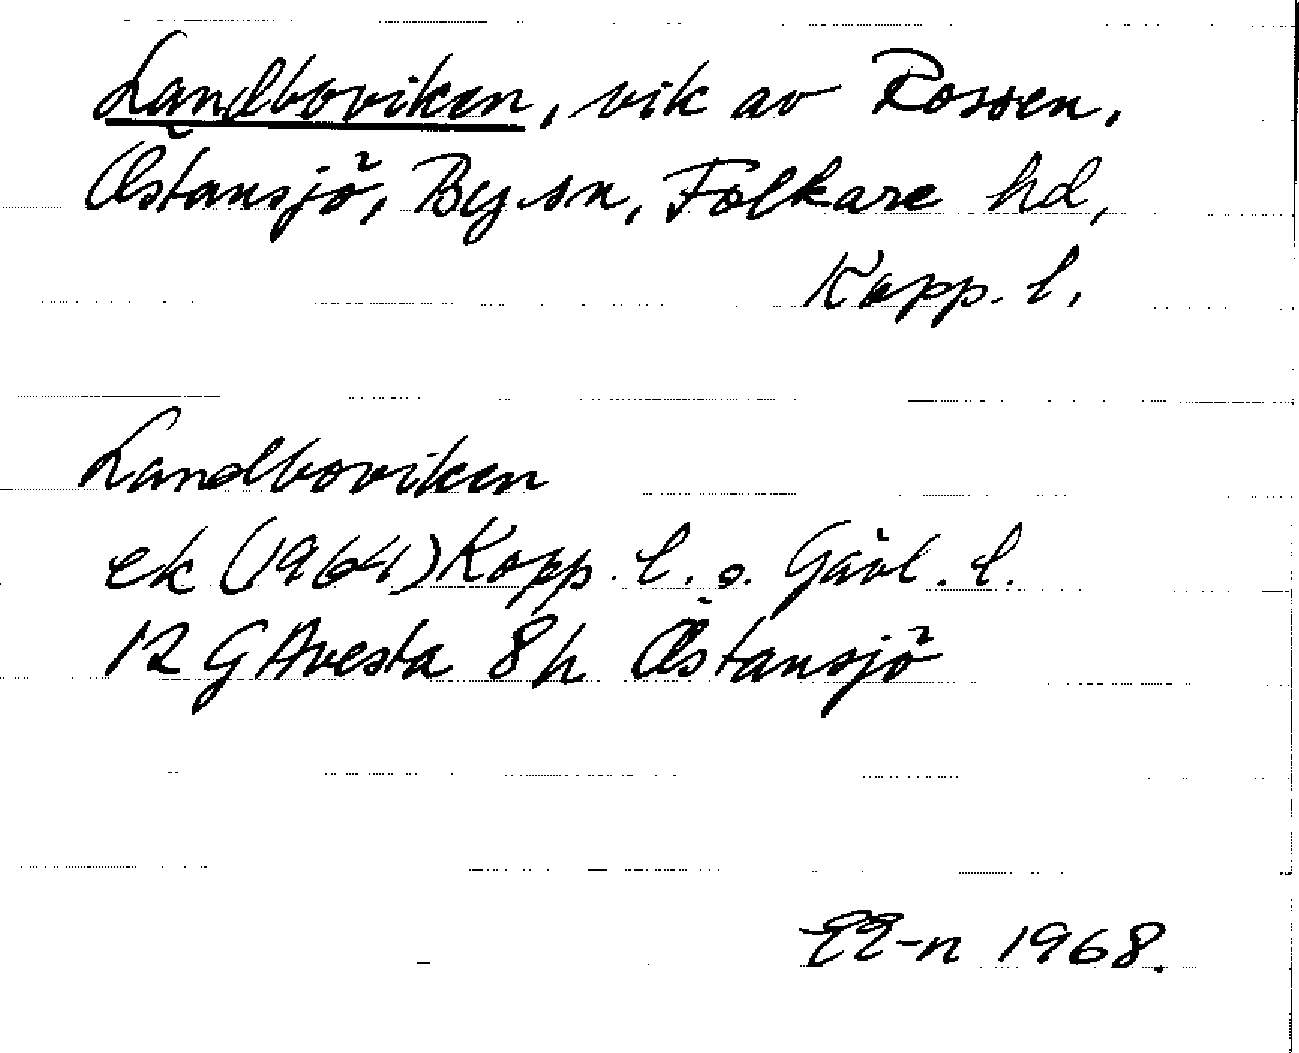 Landboviken, vik av Rossen,
Östansjö, By sn, Folkare hd,
Kopp. l.
Landboviken
ek (1964) Kopp. l. o. Gävl. l.
12 G Avesta 8h Östansjö
EE-n 1968.